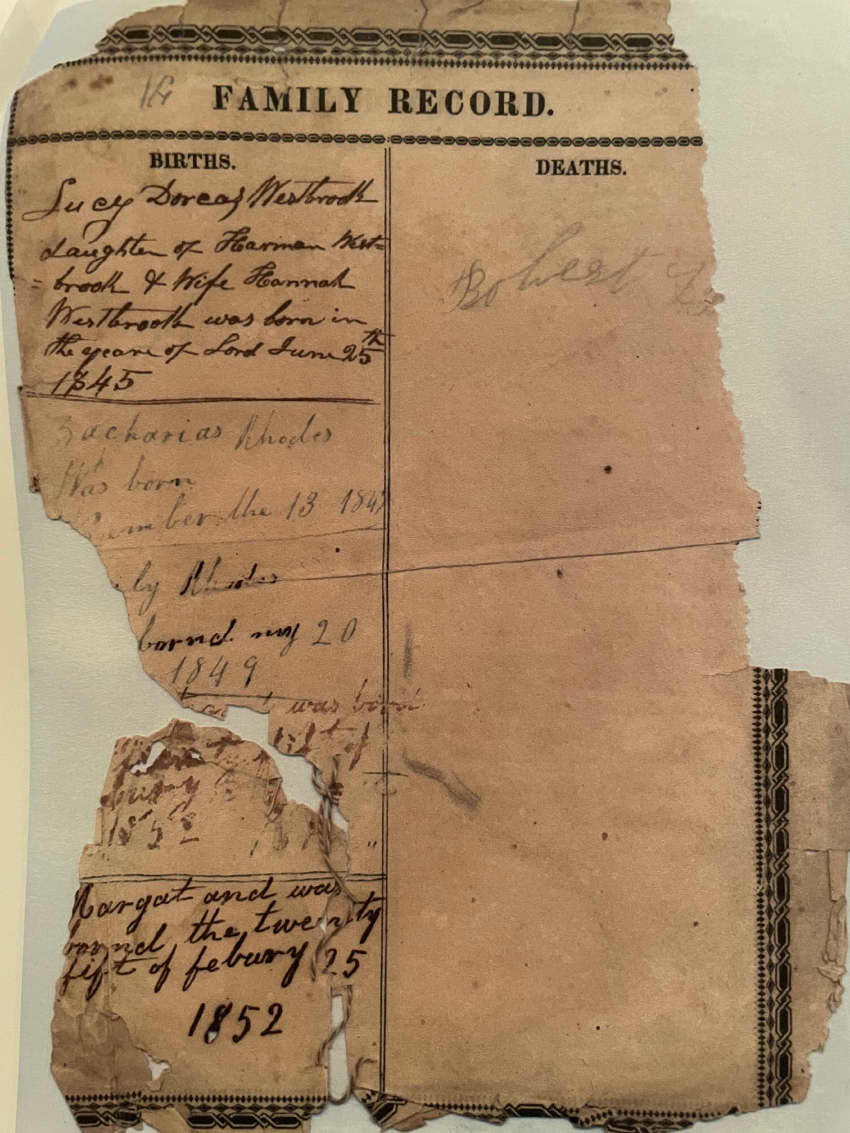 FAMILY RECORD.
BIRTHS.
Lucy Dorcas Westbrook
daughter of Harman West=
=brook & Wife Hannah
Westbrook was born in
the yeare of Lord June 25th
1845
Zacharias Rhodes
Was born
ember the 13 184
ly Rhodes
bornd may 20
1849
was born
1852
Margat and was
bornd the twenty
fift of febury 25
1852
DEATHS.
Robert